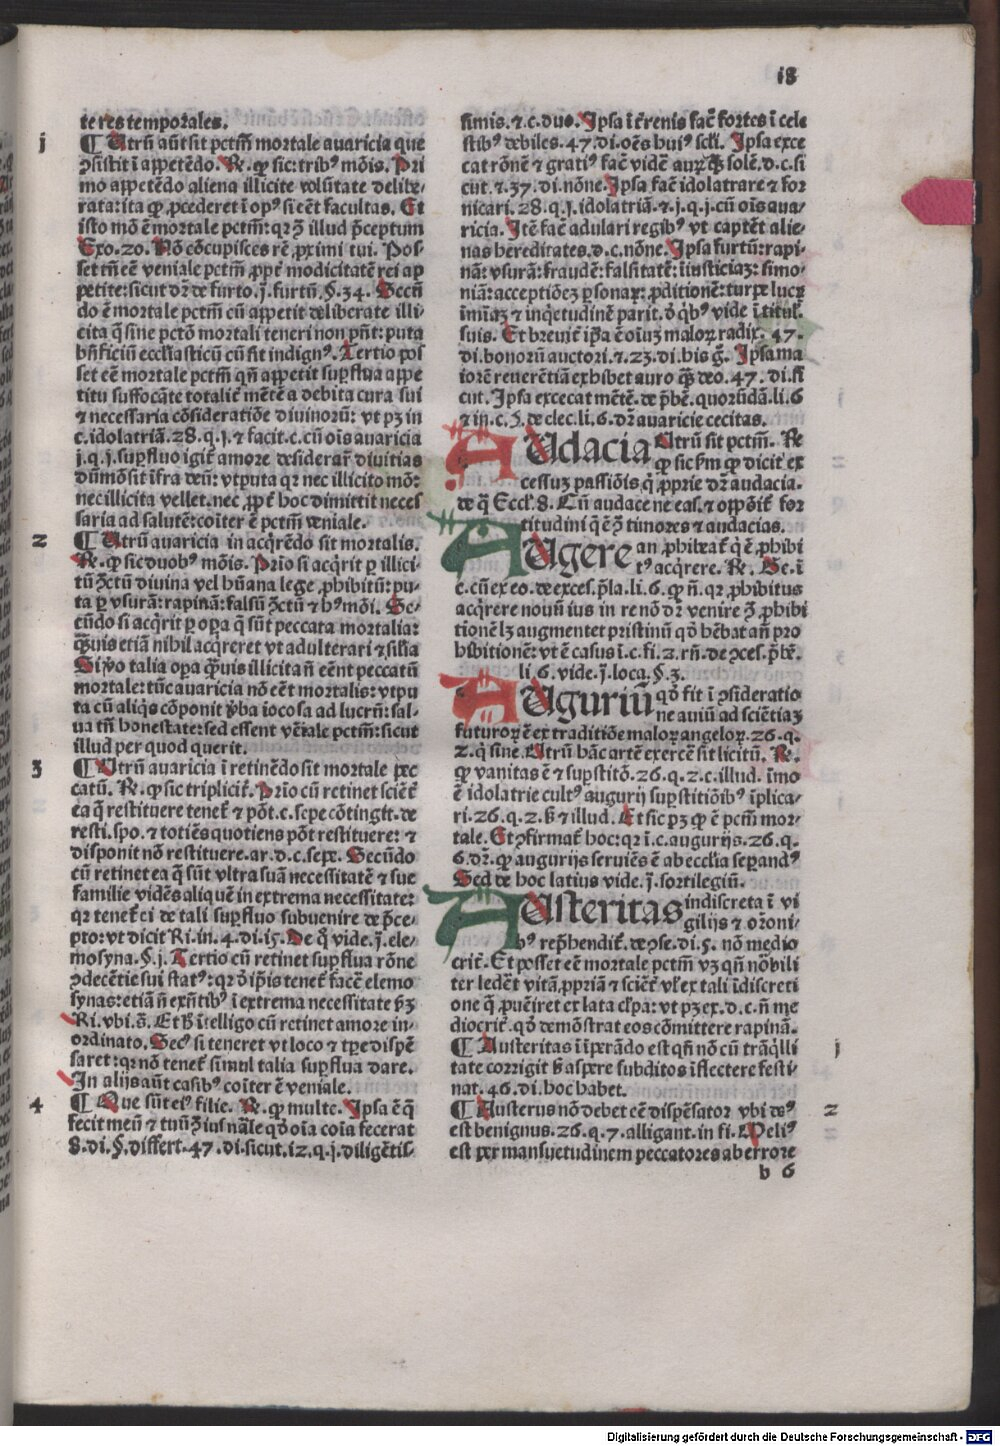 18
te res temporales.
j
¶ Utrũ aũt sit pctm̃ mortale auaricia que
ꝯsistit ĩ appetẽdo. Rͤ. ꝙ sic: tribꝰ mõis. Pri
mo appetẽdo aliena illicite volũtate delibe-
rata: ita ꝙ ꝓcederet ĩ opꝰ si eẽt facultas. Et
isto mõ ẽ mortale pctm̃: qꝛ ꝯ̃ illud p̃ceptum
Exo. 20. Nõ cõcupisces rẽ ꝓximi tui. Pos-
set tñ eẽ veniale pctm̃ ꝓpt̃ modicitatẽ rei ap
petite: sicut dr̃ de furto. j. furtũ. §. 34. Secũ
do ẽ mortale pctm̃ cũ appetit deliberate illi-
cita q̃ sine pctõ mortali teneri non pñt: puta
bñficiũ eccl̃iasticũ cũ sit indignꝰ. Tertio pos
set eẽ mortale pctm̃ qñ appetit suꝑflua appe
titu suffocãte totalit̃ mẽtẽ a debita cura sui
⁊ necessaria cõsideratiõe diuinorũ: vt pꝫ in
c. idolatriã. 28. q. j. ⁊ facit. c. cũ oĩs auaricia
j. q. j. suꝑfluo igit̃ amore desiderar̃ diuitias
dũmõ sit ĩfra deũ: vt puta qꝛ nec illicito mõ:
nec illicita vellet. nec ꝓpt̃ hoc dimittit neces
saria ad salutẽ: coĩter ẽ pctm̃ veniale.
2
¶ Utrũ auaricia in acq̃rẽdo sit mortalis.
Rͤ. ꝙ sic duobꝰ mõis. Prĩo si acq̃rit ꝑ illici-
tũ ꝯ̃ctũ diuina vel hũana lege ꝓhibitũ: pu-
ta ꝑ vsurã: rapinã: falsũ ꝯ̃ctũ ⁊ hꝰmõi. Se-
cũdo si acq̃rit ꝑ oꝑa q̃ sũt peccata mortalia:
q̃uis etiã nihil acq̃reret vt adulterari ⁊ sil̃ia
Si ṽo talia oꝑa q̃uis illicita ñ eẽnt peccatũ
mortale: tũc auaricia nõ eẽt mortalis: vtpu
ta cũ aliq̃s cõponit ṽba iocosa ad lucrũ: sal-
ua tñ honestate: sed essent vẽiale pctm̃: sicut
illud per quod querit.
3
¶ Utrũ auaricia ĩ retinẽdo sit mortale pec
catũ. Rͤ. ꝙ sic triplicit̃. Prĩo cũ retinet sciẽt̃
ea q̃ restituere tenet̃ ⁊ põt. c. sepe cõtingit. de
resti. spo. ⁊ totiẽs quotiens põt restituere: ⁊
disponit nõ restituere. ar. d. c. sepe. Secũdo
cũ retinet ea q̃ sũt vltra suã necessitatẽ ⁊ sue
familie vidẽs aliquẽ in extrema necessitate:
qꝛ tenet̃ ei de tali suꝑfluo subuenire de p̃ce-
pto: vt dicit Ri. in. 4. di. 15. De q̃ vide. j. ele-
mosyna. §. j. Tertio cũ retinet suꝑflua rõne
ꝯdecẽtie sui statꝰ: qꝛ ð ip̃is tenet̃ facẽ elemo
synas: etiã ñ exñtibꝰ ĩ extrema necessitate ẜm
Ri. vbi. s̃. Et h̃ ĩtelligo cũ retinet amore in-
ordinato. Secꝰ si teneret vt loco ⁊ tꝑe dispẽ
saret: qꝛ nõ tenet̃ simul talia suꝑflua dare.
In alijs aũt casibꝰ coĩter ẽ veniale.
4
¶ Que sũt eiꝰ filie. Rͤ. ꝙ multe. Ipsa ẽ q̃
fecit meũ ⁊ tuũ ꝯ̃ ius nãle qð oĩa coĩa fecerat
8. di. §. differt. 47. di. sicut. 12. q. j. diligẽtis-
simis. ⁊. c. duo. Ipsa ĩ t̃renis fac̃ fortes ĩ cele
stibꝰ debiles. 47. di. oẽs huiꝰ scl̃i. Ipsa exce
cat rõnẽ ⁊ gratiꝰ fac̃ vidẽ auꝝ q̃ȝ solẽ. d. c. si
cut. ⁊. 37. di. nõne. Ipsa fac̃ idolatrare ⁊ for
nicari. 28. q. j. idolatriã. ⁊. j. q. j. cũ oĩs aua-
ricia. Itẽ fac̃ adulari regibꝰ vt captẽt alie-
nas hereditates. d. c. nõne. Ipsa furtũ: rapi-
nã: vsurã: fraudẽ: falsitatẽ: ĩiusticiaȝ: simo-
niã: acceptiõeȝ ꝑsonaꝝ: ꝓditionẽ: turpe lucꝝ
ĩmĩaȝ ⁊ inq̃etudinẽ parit. ð q̃bꝰ vide ĩ titul̃.
suis. Et breuit̃ ip̃a ẽ oĩuȝ maloꝝ radix. 47.
di. bonorũ auctori. ⁊. 23. di. his g̃. Ipsa ma
iorẽ reuerẽtiã exhibet auro q̃ȝ deo. 47. di. si
cut. Ipsa excecat mẽtẽ. de p̃bẽ. quorũdã. li. 6
⁊ in. c. §. de elec. li. 6. dr̃ auaricie cecitas.
AUdacia Utrũ sit pctm̃. Rͤ
ꝙ sic ẜm ꝙ dicit̃ ex
cessuȝ passiõis q̃ ꝓprie dr̃ audacia.
de q̃ Eccl̃. 8. Cũ audace ne eas. ⁊ oppõit̃ for
titudini q̃ ẽ ꝯ̃ timores ⁊ audacias.
AUgere an ꝓhibeat̃ q̃ ẽ ꝓhibi
tꝰ acq̃rere. Rͤ. Se. ĩ
c. cũ ex eo. de excel. p̃la. li. 6. ꝙ ñ. qꝛ ꝓhibitus
acq̃rere nouũ ius in re nõ dr̃ venire ꝯ̃ ꝓhibi
tionẽ lȝ augmentet pristinũ qð hẽbat añ pro
hibitionẽ: vt ẽ casus ĩ. c. fi. 2. rñ. de ꝯces. p̃bẽ.
li. 6. vide. j. loca. §. 3.
AUguriũ qð fit ĩ ꝯsideratio
ne auiũ ad sciẽtiaȝ
futuroꝝ ẽ ex traditiõe maloꝝ angeloꝝ. 26. q.
2. q̃ sine. Utrũ hãc artẽ exercẽ sit licitũ. Rͤ.
ꝙ vanitas ẽ ⁊ suꝑstitõ. 26. q. 2. c. illud. ĩmo
ẽ idolatrie cultꝰ augurij suꝑstitiõibꝰ ĩplica-
ri. 26. q. 2. h̃ ⁊ illud. Et sic pꝫ ꝙ ẽ pctm̃ mor-
tale. Et ꝯfirmat̃ hoc: qꝛ ĩ. c. augurijs. 26. q.
6. dr̃. ꝙ augurijs seruiẽs ẽ ab eccl̃ia seꝑandꝰ
Sed de hoc latius vide. j. sortilegiũ.
AUsteritas indiscreta ĩ vi
gilijs ⁊ or̃oni-
bꝰ rep̃hendit̃. de ꝯse. di. 5. nõ medio
crit̃. Et posset eẽ mortale pctm̃ vȝ qñ nõbili
ter ledẽt vitã ꝓpriã ⁊ sciẽt̃ vl̃ ex tali ĩdiscreti
one q̃ ꝓueĩret ex lata cl̃pa: vt pꝫ ex. d. c. ñ me
diocrit̃. qð demõstrat eos cõmittere rapinã.
j
¶ Austeritas ĩ ĩperãdo est qñ nõ cũ trãq̃lli
tate corrigit h̃ aspere subditos ĩflectere festi-
nat. 46. di. hoc habet.
2
¶ Austerus nõ debet eẽ dispẽsator vbi deꝰ
est benignus. 26. q. 7. alligant. in fi. Meliꝰ
est per mansuetudinem peccatores ab errore
b 6
Digitalisierung gefördert durch die Deutsche Forschungsgemeinschaft - DFG